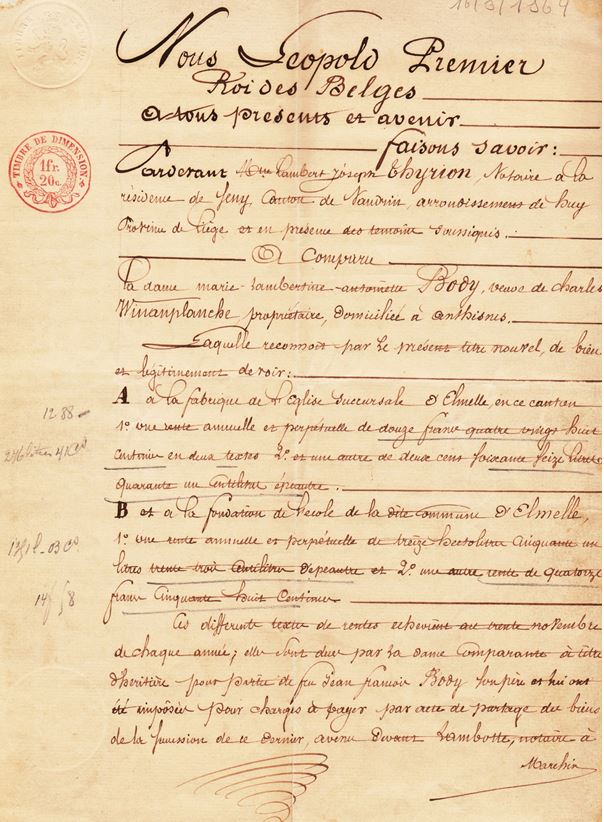 16/3/1864
Nous Leopold Premier
Roi des Belges
A tous presents et avenir
faisons savoir:
TIMBRE DE DIMENSION
1fr.
20c.
Pardevant Mtre Lambert Joseph Thyrion, Notaire à la
résidence de Seny, Canton de Nandrin, arrondissement de huy
Province de Liége et en présence des temoins soussignés.
A Comparu
La dame marie-Lambertine-antoinette Body, veuve de charles
Winanplanche propriétaire, domiciliée à anthisnes.
Laquelle reconnoit par le présent titre nouvel, de bien
et légitimement devoir:
A à la fabrique de l'Eglise succursale d'Elmelle, en ce canton
1288
1° une rente annuelle et perpétuelle de douze francs quatre vingt huit
276 litres 41
Centimes en deux textes 2° et une autre de deux cens soixante seize litres
quarante un Centilitres épeautre.
B et à la fondation de l'ecole de la dite commune d'Elmelle,
1° une rente annuelle et perpétuelle de treize hectolitres cinquante un
litres trente trois centilitres d'epeautre et 2° une autre rente de quatorze
14 58
francs Cinquante huit Centimes.
Ces différents textes de rentes echoient au trente novembre
de chaque année; elles sont dues par la dame Comparante à titre
d'heritière pour partie de feu Jean francois Body son père et lui ont
été imposées pour charges à payer par acte de partage des biens
de la succession de ce dernier, avenu devant Lambotte, notaire à
Marchin